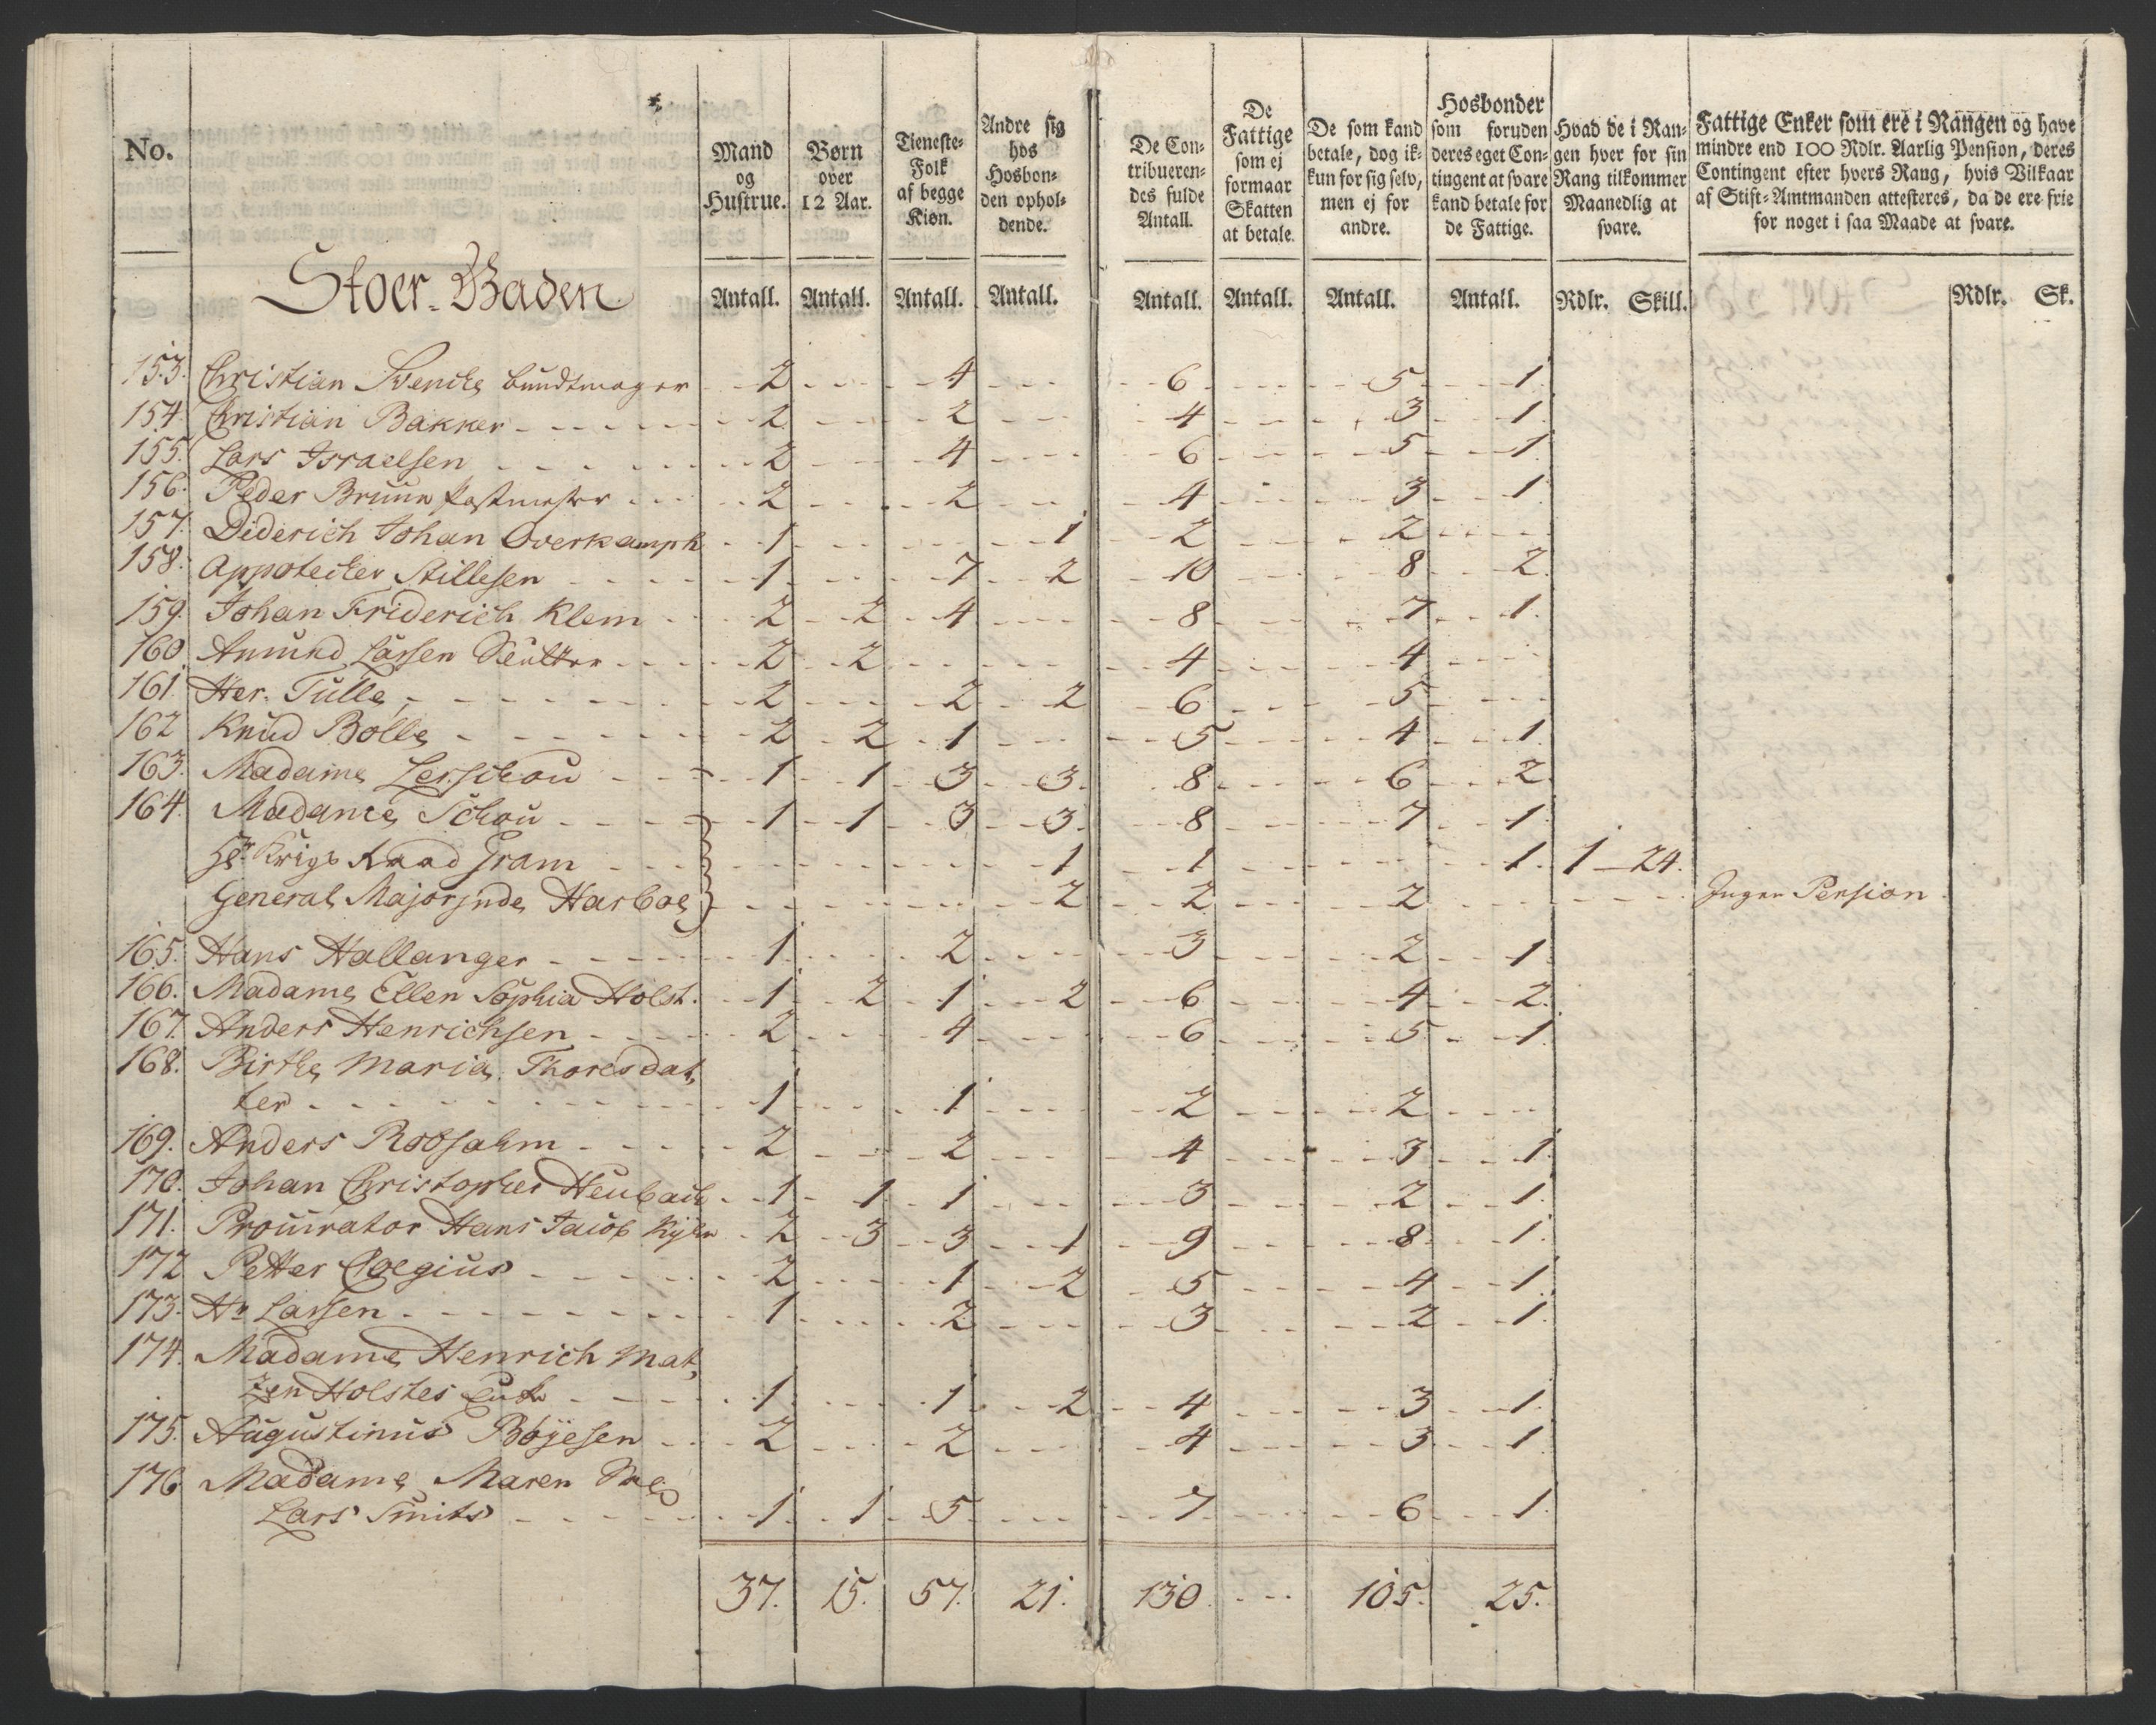 No.
Mand og Hustrue.
Børn over 12 Aar.
Tieneste-Folk af begge Kiøn.
Andre sig hos Hosbon-den ophol-dende.
De Con-tribueren-des fulde Antall.
De Fattige som ej formaar Skatten at betale.
De som kand betale, dog ik-kun for sig selv, men ej for andre.
Hosbonder som foruden deres eget Con-tingent at svare kand betale for de Fattige.
Hvad de i Ran-gen hver for sin Rang tilkommer Maanedlig at svare.
Fattige Enker som ere i Rangen og have mindre end 100 Rdlr. Aarlig Pension, deres Contingent efter hvers Rang, hvis Vilkaar af Stift-Amtmanden attesteres, da de ere frie for noget i saa Maade at svare.
Stoer-Gaden
Antall. Antall. Antall. Antall. Antall. Antall. Antall. Antall. Rdlr. Skill. Rdlr. Sk.
153. Christian Svencke bundtmager 2 4 6 5 1.
154 Christian Bakker 2 2 4 3 1
155. Lars Israelsen 2 4 6 5 1
156. Peder Bruun Postmester 2 2 4 3 1.
157. Diderich Johan Overkamph 1 1 2 2
158. Appotecker Stillesen 1 7 2 10 8 2.
159. Johan Friderich Klem 2 2 4 8 7 1.
160 Amund Lassen 2 2 4 4
161. Her. Tulle 2 2 2 6 5
162 Knud Bolle 2 2 1 5 4 1.
163. Madame Lerschou 1 1 3 3 8 6 2
164 Madame Schou 1 1 3 3. 8 7 1.
Hr. Krigs Raad Gram 1 1 1. 1 24.
General Majorinde Harboe 2 2 2 Ingen Pension
165. Hans Hallanger 1 2 3 2 1
166. Madame Ellen Sophia Holst. 1 2 1 2 6 4 2.
167. Anders Henrichsen 2 4 6 5 1
168. Birthe Maria Thoresdat,
ter 1 1 2 2
169. Anders Robsahm 2 2 4 3 1
170. Johan Christopher Heubach 1 1 1 3 2 1.
171. Procurator Hans Jacob 2 3 3 1 9 8 1.
172 Petter Coegius 2 1 2 5 4 1
173. Hr Lassen 1 2 3 2 1.
174. Madame Henrich Mat,
zen Holstes Enke 1 1 2 4 3 1.
175. Augustinus Bøyesen 2 2 4 3 1
176 Madame Maren
Lars Smits 1 1 5 7 6 1.
37. 15. 57. 21. 130 105. 25.